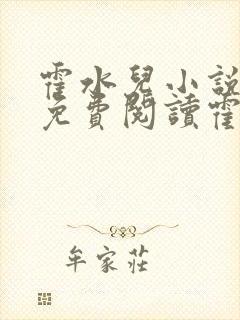 霍水兒小說
免費閱讀霍
牟家莊